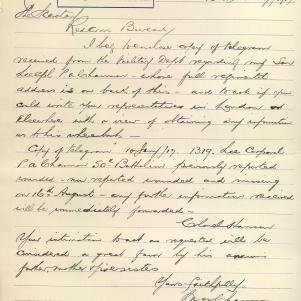 The Secretary
Red Cross Bureau
I beg to enclose copy of telegram
received from the Military Dept regarding my Son
whose full regimental
address is on back of this - and to ask if you
could write your representatives in London or
Elsewhere with a view of obtaining any information
as to his whereabouts -
Copy of telegram 1319 Lce Corporal
P.A. 50th Battalion previously reported
wounded - now reported wounded and missing
on 16th August - any further information received
will be immediately forwarded -
Your intimation to act as requested will be
considered a great favor by his
father, mother &
Yours faithfully